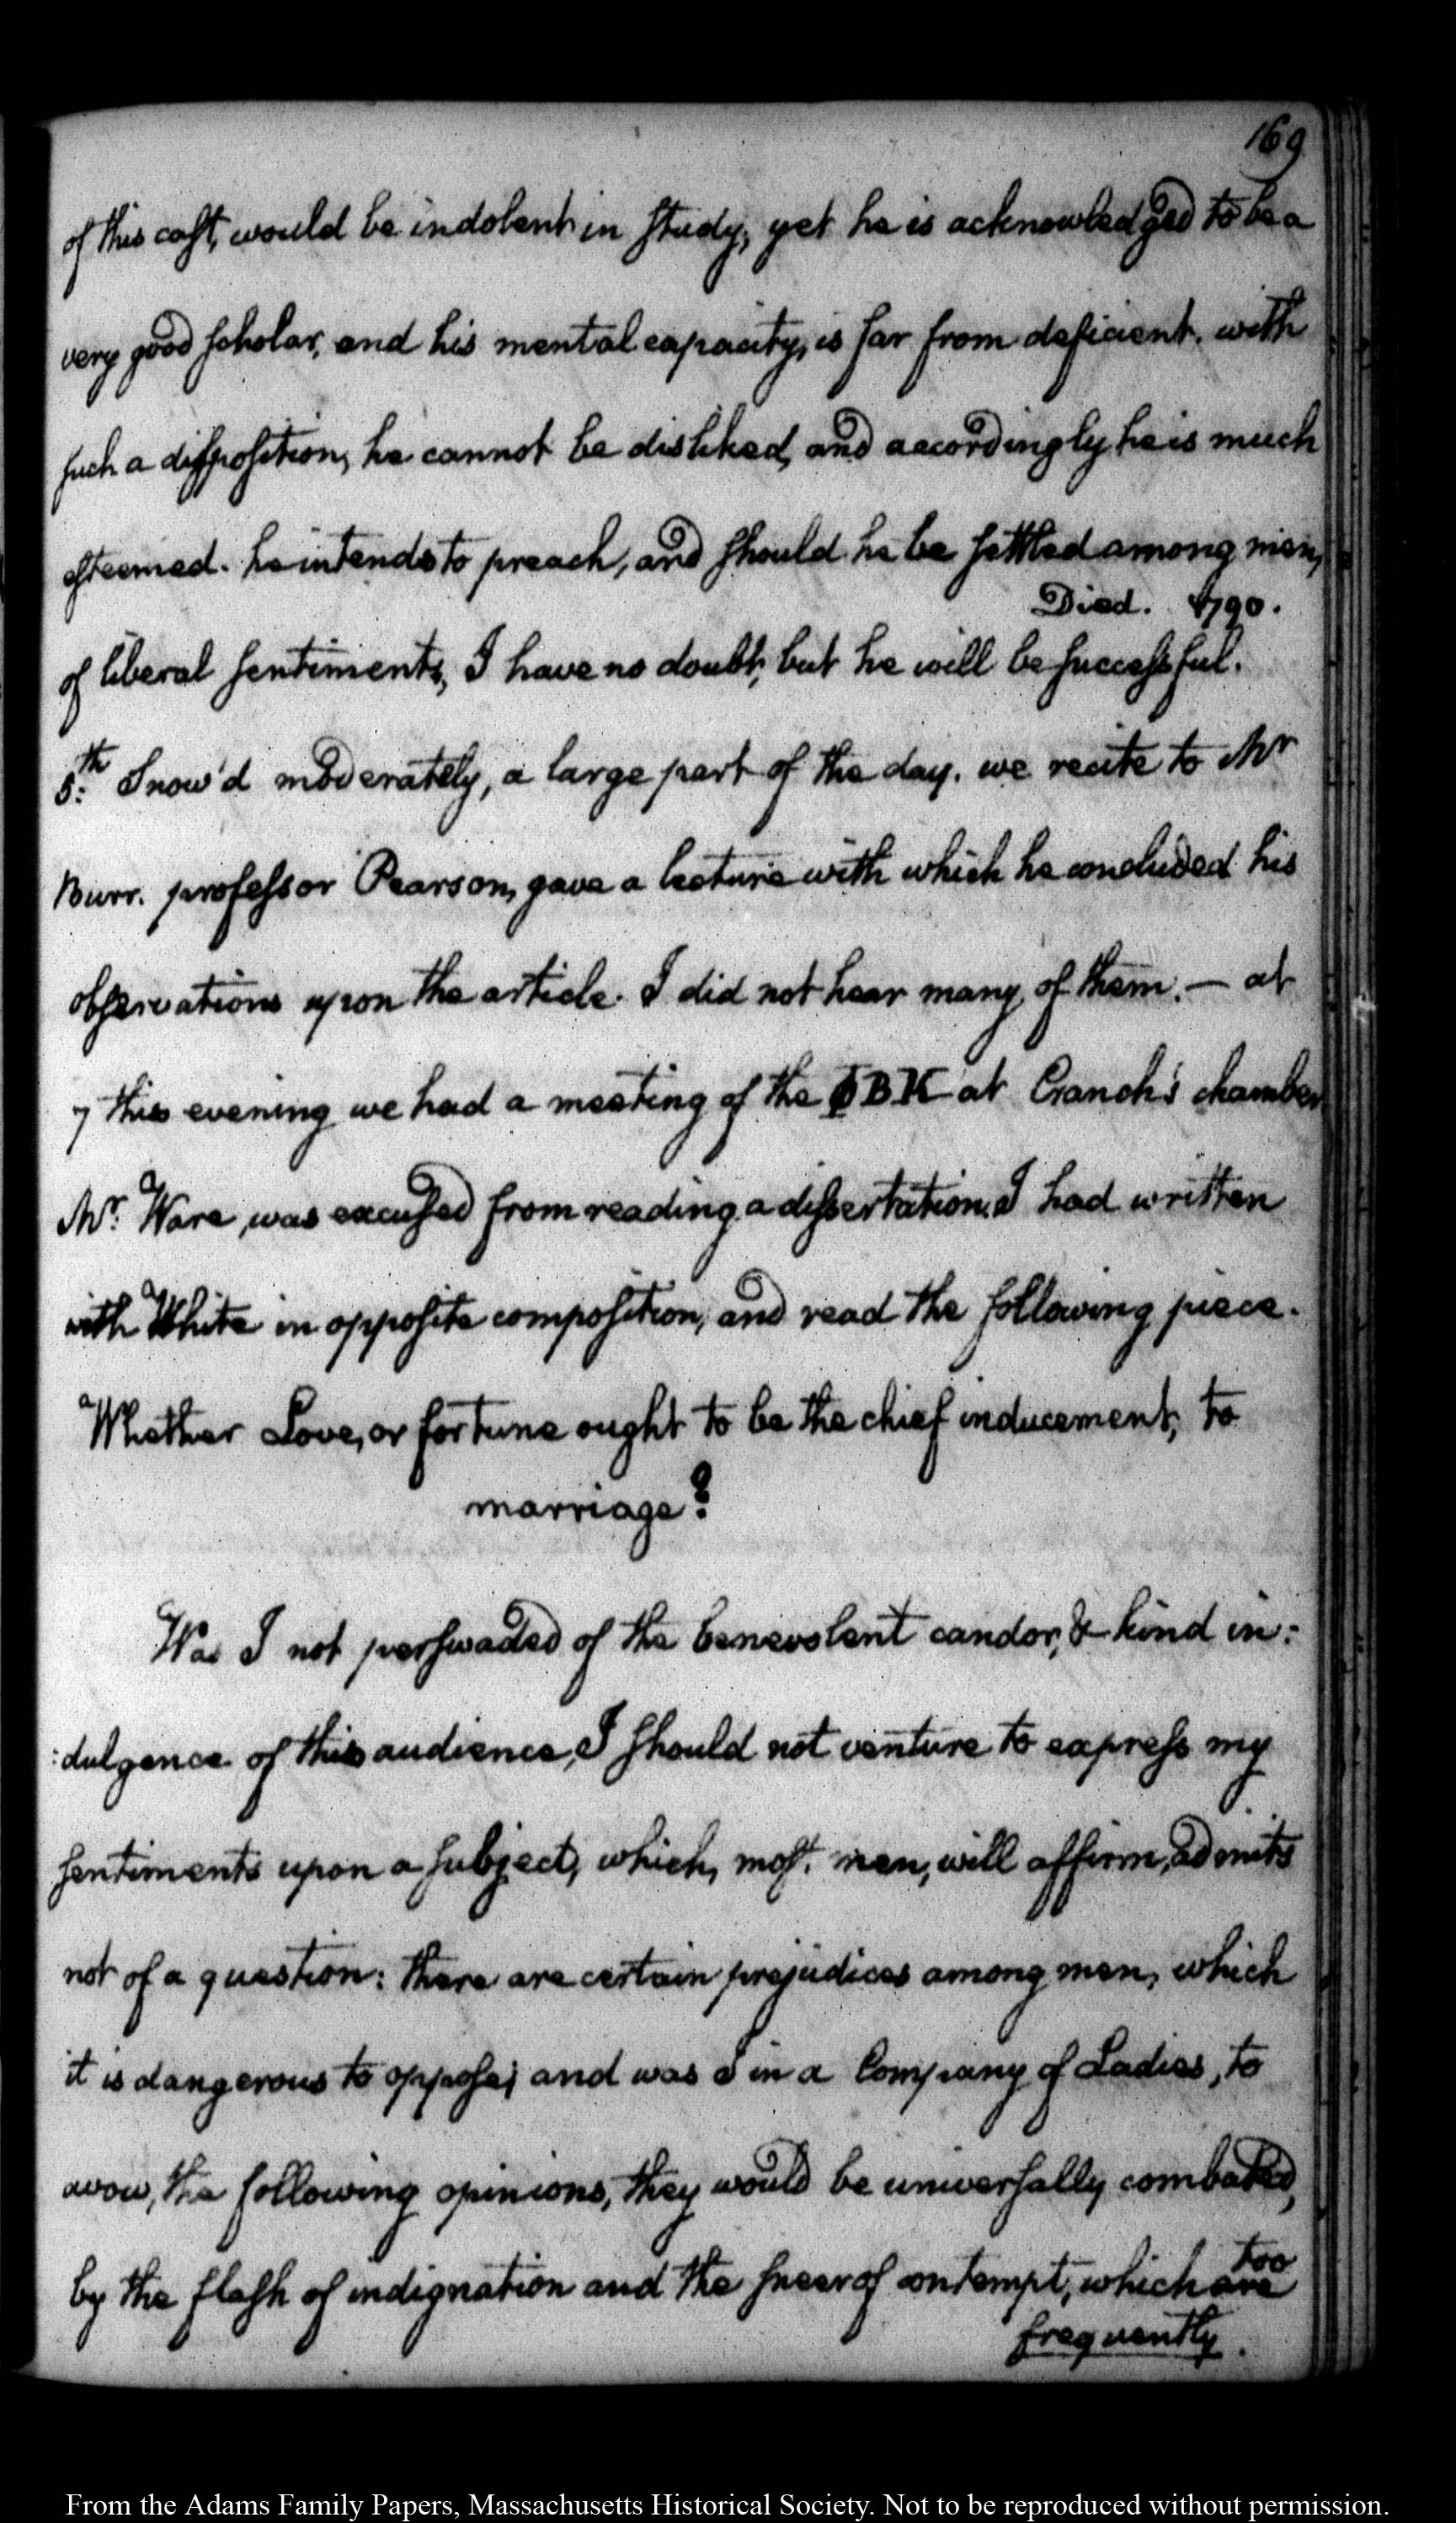 169
of this cast, would be indolent in study, yet he is acknowledged to be a
very good scholar, and his mental capacity, is far from deficient. with
such a disposition, he cannot be disliked, and accordingly he is much
esteemed. he intends to preach, and should he be settled among men,
Died. 1790.
of liberal sentiments, I have no doubt, but he will be successful.
5th. Snow'd moderately, a large part of the day. we recite to Mr
Burr. professor Pearson, gave a lecture with which he concluded his
observations upon the article. I did not hear many of them. — at
7 this evening we had a meeting of the ΦBK at Cranch's chamber
Mr. Ware, was excused from reading a dissertation. I had written
with White in opposite composition, and read the following piece.
Whether Love, or fortune ought to be the chief inducement, to
marriage?
Was I not perswaded of the benevolent candor, & kind in:
:dulgence of this audience, I should not venture to express my
sentiments upon a subject, which, most men, will affirm, admits
not of a question: there are certain prejudices among men, which
it is dangerous to oppose; and was I in a Company of Ladies, to
avow, the following opinions, they would be universally combated,
by the flash of indignation and the sneer of contempt, which are too
frequently.
From the Adams Family Papers, Massachusetts Historical Society. Not to be reproduced without permission.